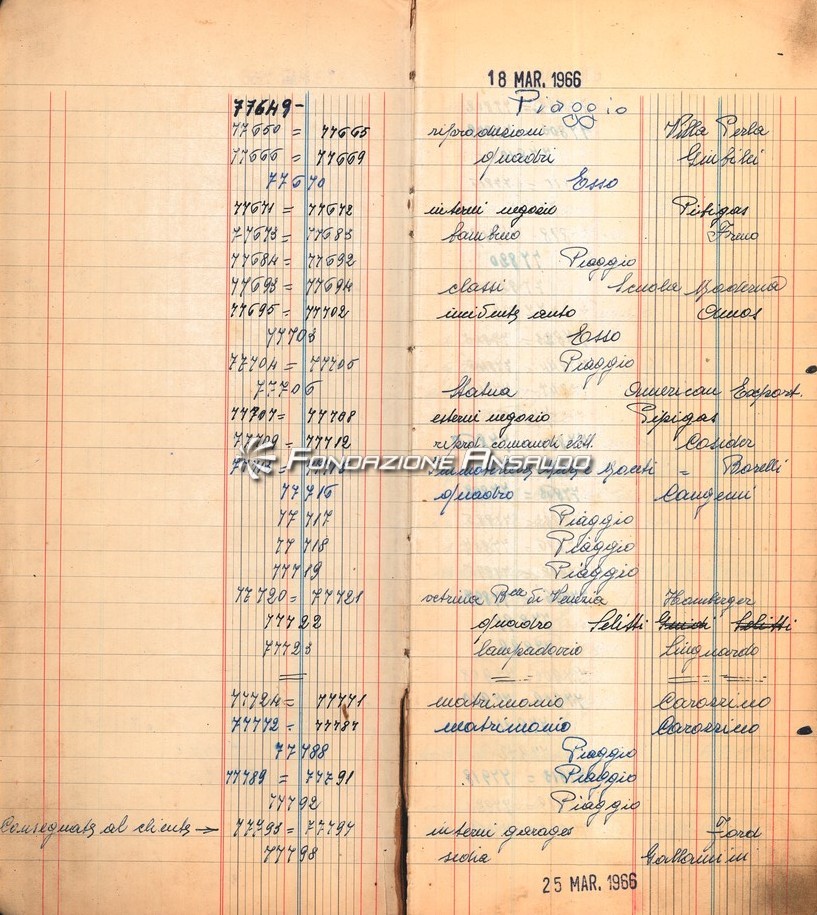 18 MAR. 1966
77649- Piaggio
77650 = 77665 riproduzioni Villa Perla
77666 = 77669 quadri
77670 Esso
77671 = 77672 interni negozio Pibigas
77673 = 77683 bambino
77684 = 77692 Piaggio
77693 = 77694 classi Scuola Moderna
77695 = 77702 incidente auto Amos
77703 Esso
77704 = 77705 Piaggio
77706 Statua American Export.
77707 = 77708 esterni negozio Pipigas
77709 = 77712 riprod. comandi elett. Cosider
FONDAZIONE ANSALDO
= Borelli
77716 quadro Cangemi
77717 Piaggio
77718 Piaggio
77719 Piaggio
77720 = 77721 vetrina Bca di Venezia Hamberger
77722 quadro Selitti
77723 lampadario Linguardo
77724 = 77771 matrimonio Carozzino
77772 = 77787 matrimonio Carozzino
77788 Piaggio
77789 = 77791 Piaggio
77792 Piaggio
Consegnate al cliente → 77793 = 77797 interni garages Ford
77798 sedia
25 MAR. 1966